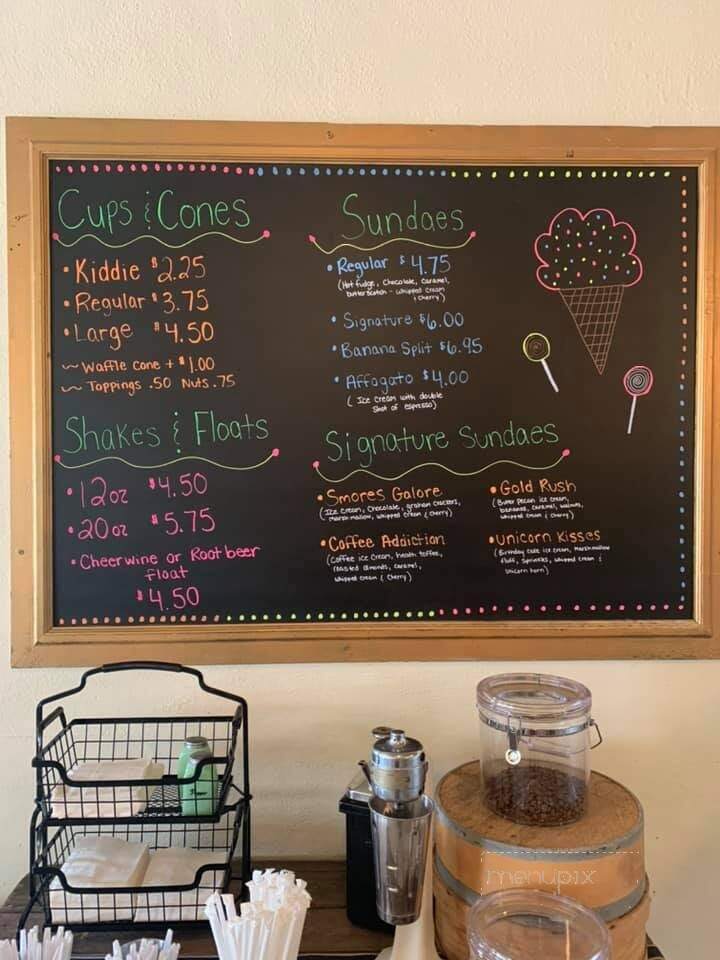 Cups & Cones
• Kiddie $2.25
• Regular $3.75
• Large $4.50
~ Waffle Cone + $1.00
~ Toppings .50 Nuts .75
Shakes & Floats
• 12oz $4.50
• 20oz $5.75
• Cheerwine or Rootbeer
float
$4.50
Sundaes
• Regular $4.75
(Hot fudge, Chocolate, Caramel,
butterscotch - whipped cream
& Cherry)
• Signature $6.00
• Banana Split $6.95
• Affogato $4.00
(Ice Cream with double
Shot of espresso)
Signature Sundaes
• Smores Galore
(Ice Cream, Chocolate, graham crackers,
marshmallow, whipped cream & cherry)
• Coffee Addiction
(coffee ice cream, heath toffee,
roasted almonds, caramel,
whipped cream & Cherry)
• Gold Rush
(Butter pecan ice cream,
bananas, caramel, walnuts,
whipped cream & cherry)
• Unicorn Kisses
(Birthday cake ice cream, Marshmallow
fluff, sprinkles, whipped cream &
unicorn horn)
menupix